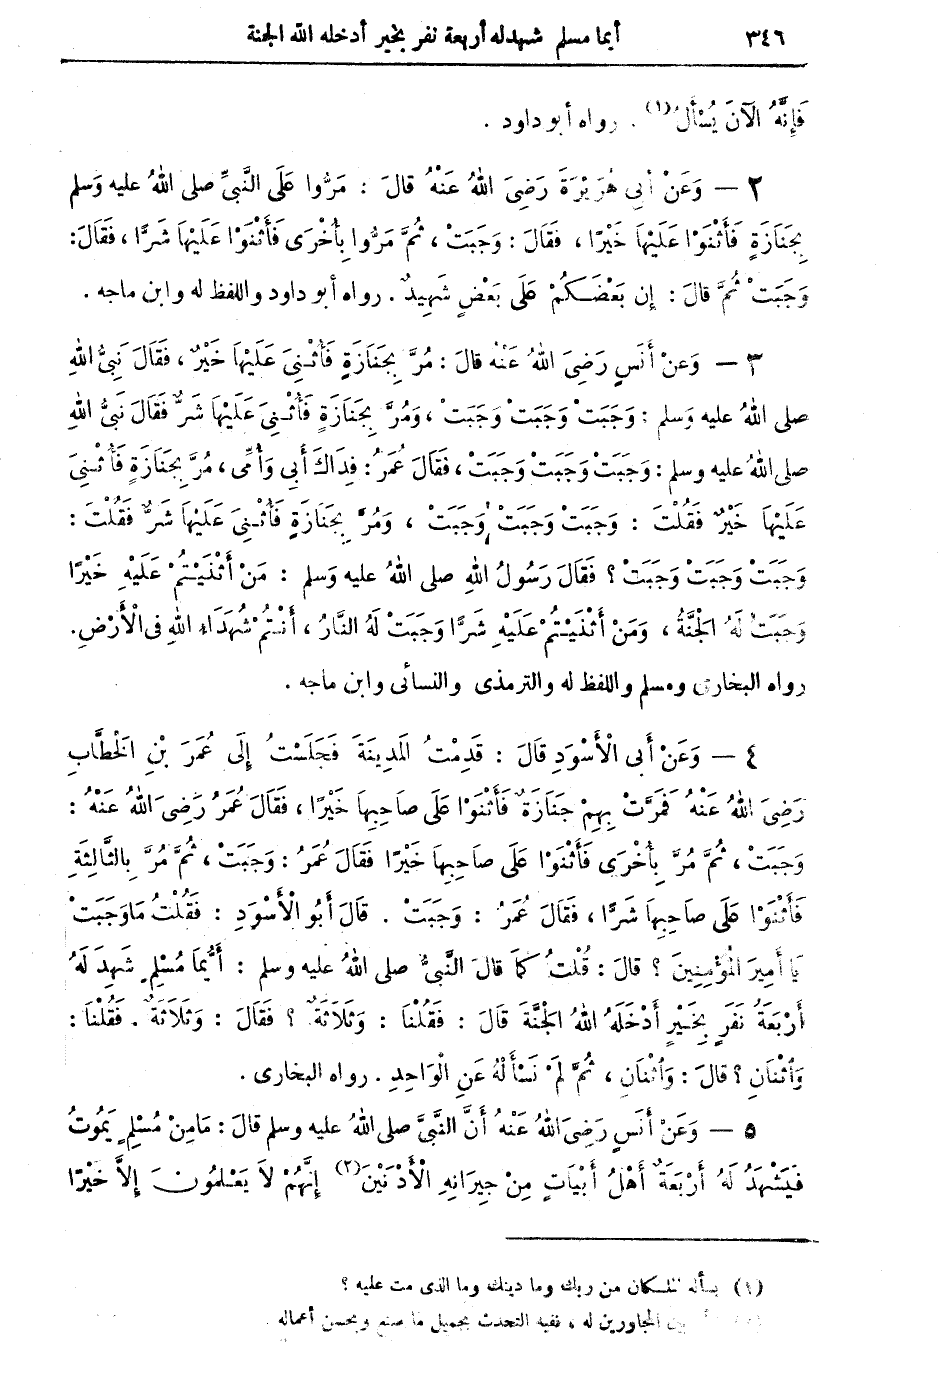 ٣٤٦ أيما مسلم شهد له أربعة نفر بخير أدخله الله الجنة
فَإِنَّهُ الآنَ يُسْأَلُ(١) . رواه أبو داود .
٢ — وَعَنْ أَبِى هُرَيْرَةَ رَضِىَ اللهُ عَنْهُ قالَ : مَرُّوا عَلَى النَّبِىِّ صلى اللهُ عليه وَسلم
بِجَنَازَةٍ فَأَثْنَوْا عَلَيْهَا خَيْرًا ، فَقَالَ : وَجَبَتْ ، ثُمَّ مَرُّوا بِأُخْرَى فَأَثْنَوْا عَلَيْهَا شَرًّا ، فَقَالَ :
وَجَبَتْ ثُمَّ قالَ : إن بَعْضَكُمْ عَلَى بَعْضٍ شَهِيدٌ . رواه أبو داود واللفظ له وابن ماجه .
٣ — وَعنْ أَنَسٍ رَضِىَ اللهُ عَنْهُ قالَ : مُرَّ بِجَنَازَةٍ فَأُثْنِىَ عَلَيْهَا خَيْرٌ ، فَقَالَ نَبِىُّ اللهِ
صلى اللهُ عليه وَسلم : وَجَبَتْ وَجَبَتْ وَجَبَتْ ، وَمُرَّ بِجَنَازَةٍ فَأُثْنِىَ عَلَيْهَا شَرٌّ فَقَالَ نَبِىُّ اللهِ
صلى اللهُ عليه وسلم : وَجَبَتْ وَجَبَتْ وَجَبَتْ ، فَقَالَ عُمَرُ : فِدَاكَ أَبِى وَأُمِّى ، مُرَّ بِجَنَازَةٍ فَأُثْنِىَ
عَلَيْهَا خَيْرٌ فَقُلْتَ : وَجَبَتْ وَجَبَتْ وَجَبَتْ ، وَمُرَّ بِجَنَازَةٍ فَأُثْنِىَ عَلَيْهَا شَرٌّ فَقُلْتَ :
وَجَبَتْ وَجَبَتْ وَجَبَتْ ؟ فَقَالَ رَسُولُ اللهِ صلى اللهُ عليه وَسلم : مَنْ أَثْنَيْتُمْ عَلَيْهِ خَيْرًا
وَجَبَتْ لَهُ الْجَنَّةُ ، وَمَنْ أَثْنَيْتُمْ عَلَيْهِ شَرًّا وَجَبَتْ لَهُ النَّارُ ، أَنْتُمْ شُهَدَاءُ اللهِ فِى الْأَرْضِ .
رواه البخارى ومسلم واللفظ له والترمذى والنسائى وابن ماجه .
٤ — وَعَنْ أَبِى الْأَسْوَدِ قَالَ : قَدِمْتُ الْمَدِينَةَ فَجَلَسْتُ إِلَى عُمَرَ بْنِ الْخَطَّابِ
رَضِىَ اللهُ عَنْهُ فَمَرَّتْ بِهِمْ جَنَازَةٌ فَأَثْنَوْا عَلَى صَاحِبِهَا خَيْرًا ، فَقَالَ عُمَرُ رَضِىَ اللهُ عَنْهُ :
وَجَبَتْ ، ثُمَّ مُرَّ بِأُخْرَى فَأَثْنَوْا عَلَى صَاحِبِهَا خَيْرًا فَقَالَ عُمَرُ : وَجَبَتْ ، ثُمَّ مُرَّ بِالثَّالِثَةِ
فَأَثْنَوْا عَلَى صَاحِبِهَا شَرًّا ، فَقَالَ عُمَرُ : وَجَبَتْ . قَالَ أَبُو الْأَسْوَدِ : فَقُلْتُ مَا وَجَبَتْ
يَا أَمِيرَ الْمُؤْمِنِينَ ؟ قالَ : قُلْتُ كَمَا قالَ النَّبِىُّ صلى اللهُ عليه وسلم : أَيُّمَا مُسْلِمٍ شَهِدَ لَهُ
أَرْبَعَةُ نَفَرٍ بِخَيْرٍ أَدْخَلَهُ اللهُ الْجَنَّةَ قَالَ : فَقُلْنَا : وَثَلَاثَةٌ ؟ فقَالَ : وَثَلَاثَةٌ . فَقُلْنَا :
وَاثْنَانِ ؟ قالَ : وَاثْنَانِ ، ثُمَّ لَمْ نَسْأَلْهُ عَنِ الْوَاحِدِ . رواه البخارى .
٥ — وَعَنْ أَنَسٍ رَضِىَ اللهُ عَنْهُ أَنَّ النَّبِىَّ صلى اللهُ عليه وسلم قالَ : مَامِنْ مُسْلِمٍ يَمُوتُ
فَيَشْهَدُ لَهُ أَرْبَعَةُ أَهْلُ أَبْيَاتٍ مِنْ جِيرَانِهِ الْأَدْنَيْنَ(٢) إِنَّهُمْ لاَ يَعْلَمُونَ إِلاَّ خَيْرًا
(١) يسأله الملكان من ربك وما دينك وما الذى مت عليه ؟
المجاورين له ، ففيه التحدث بجميل ما صنع وبحسن أعماله .